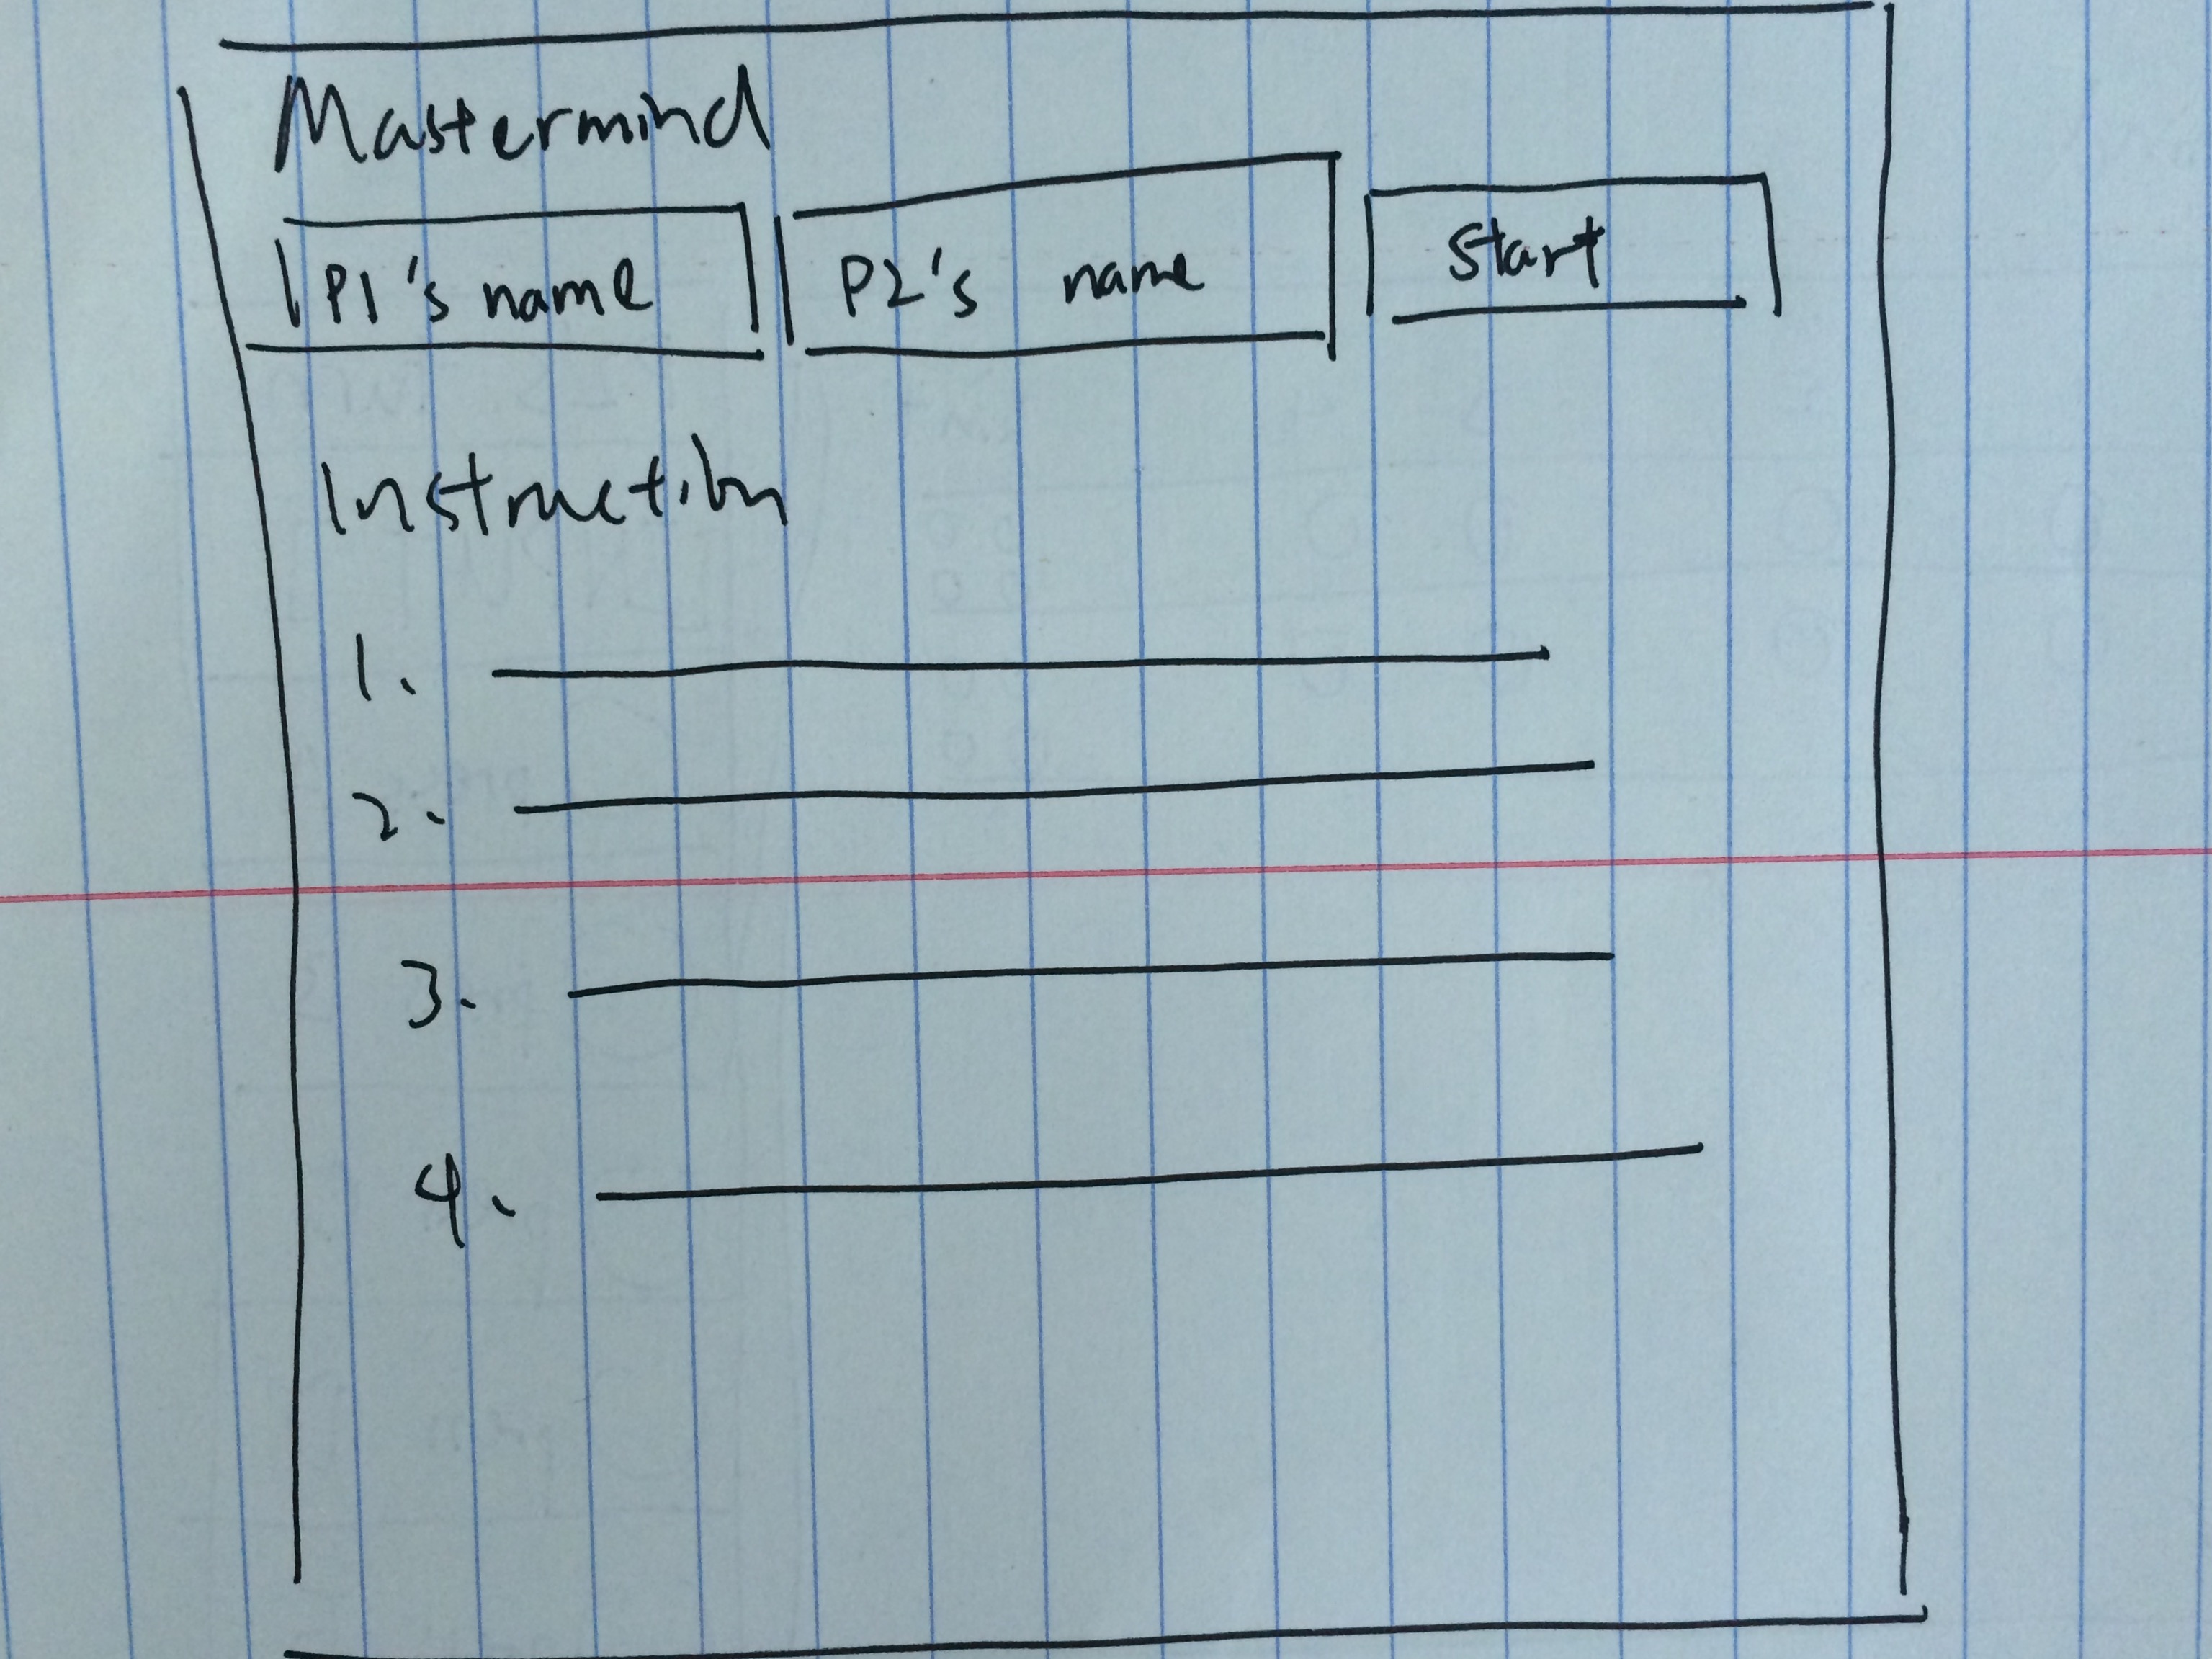 Mastermind
P1's name P2's name Start
Instruction
1.
2.
3.
4.